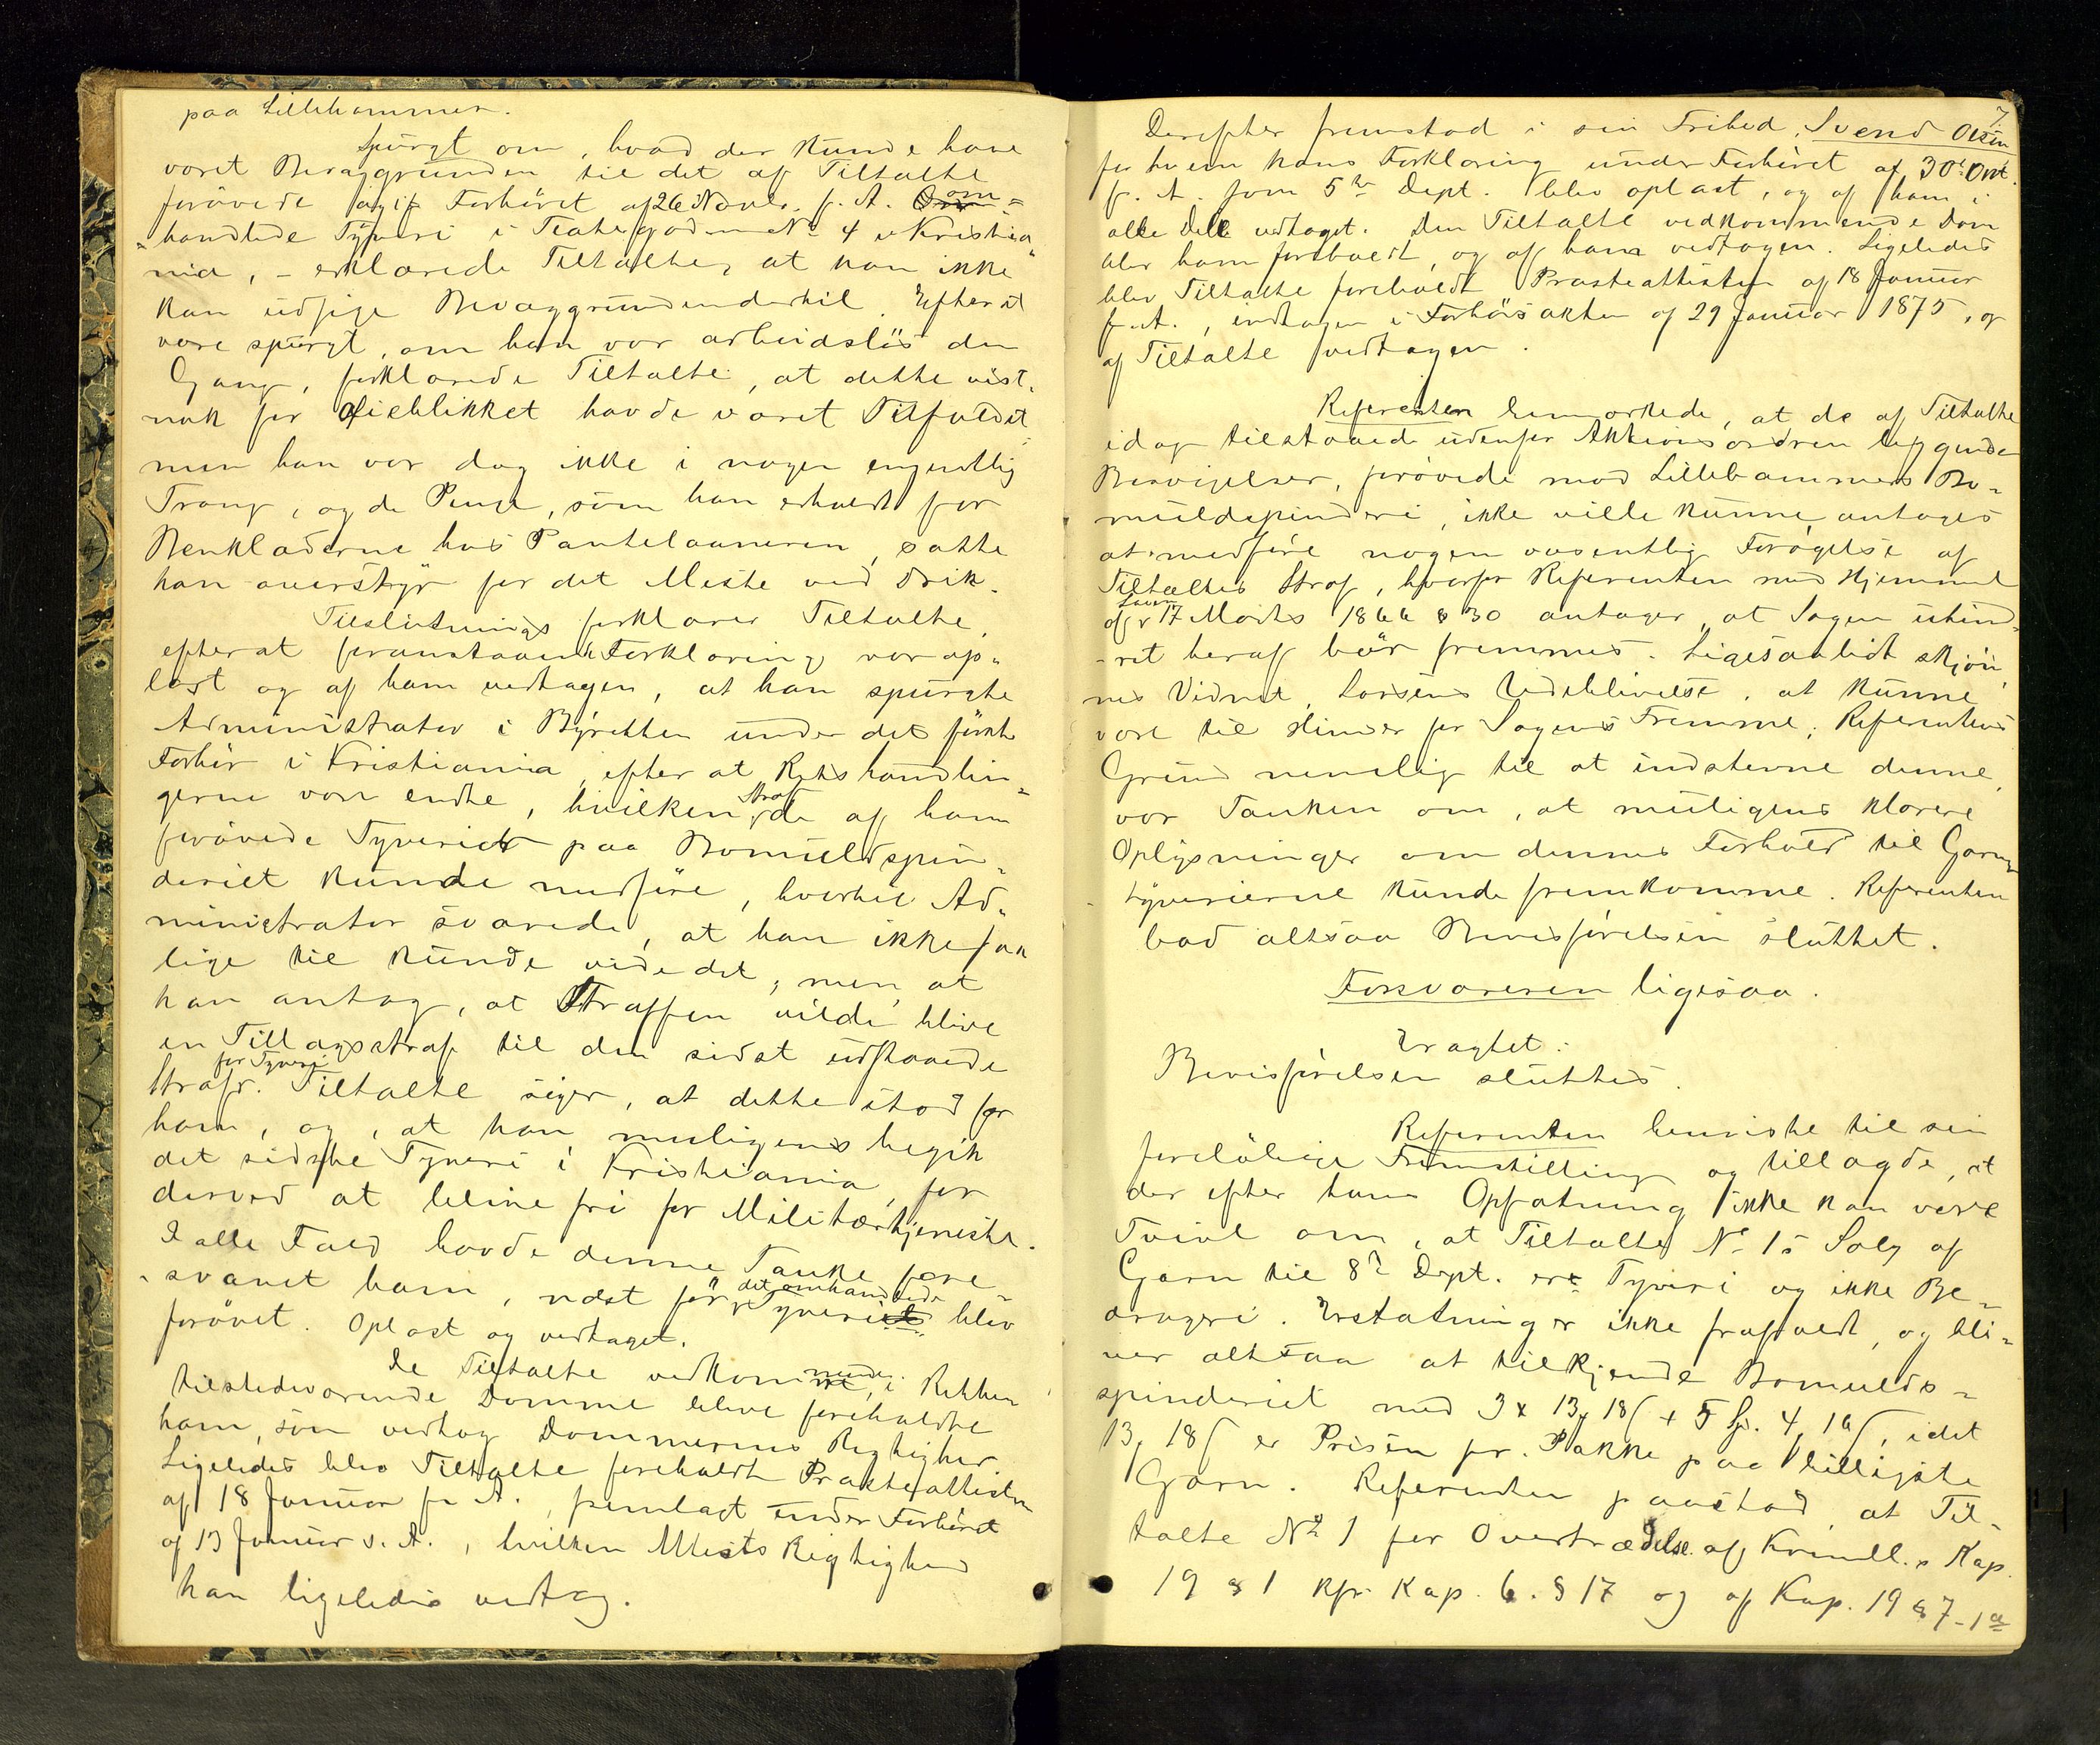 paa Lillehammer.
Spurgt om, hvad der kunde have
været Bevæggrunden til det af Tiltalte
forøvede ifølge Forhøret af 26 Novbr. f. A. om=
handlede Tyveri i Teatergaden No 4 i Kristia=
nia, – erklærede Tiltalte, at han ikke
kan udsige Bevæggrunden dertil. Efter at
være spurgt, om han var arbeidsløs den
Gang, forklarede Tiltalte, at dette vist=
nok for Øieblikket havde været Tilfældet
men han var dog ikke i nogen egentlig
Trang, og de Penge, som han erholdt for
Benklæderne hos Pantelaaneren, satte
han overstyr for det Meste ved Drik.
Tilslutnings forklarer Tiltalte,
efter at foranstaaende Forklaring var op=
læst og af ham vedtagen, at han spurgte
Administrator i Byretten under det første
Forhør i Kristiania, efter at Retshandlin=
gerne vare endte, hvilken Straf de af ham
forøvede Tyverier paa Bomuldspin=
deriet kunde medføre, hvortil Ad=
ministrator svarede, at han ikke saa
lige til kunde vide det, men at
han antog, at Straffen vilde blive
en Tillægsstraf til den sidst udstaaede
Straf for Tyveri. Tiltalte siger, at dette stod for
ham, og, at han muligens begik
det sidste Tyveri i Kristiania, for
derved at blive fri for Militærtjeneste.
I alle Fald havde denne Tanke fore=
svævet ham, næst før det omhandlede Tyveriet blev
forøvet. Oplæst og vedtaget.
De Tiltalte vedkommende, i Retten
tilstedeværende Domme bleve foreholdte
ham, som vedtog Dommernes Rigtighed
Ligeledes blev Tiltalte foreholdt Præsteattesten
af 18 Januar f. A., fremlagt under Forhøret
af 13 Januar s. A., hvilken Attests Rigtighed
han ligeledes vedtog.
7
Derefter fremstod i sin Frihed, Svend Olsen
for hvem hans Forklaring under Forhøret af 30te Okt.
f. A. som 5te Dept. blev oplæst, og af ham i
alle Dele vedtaget. Den Tiltalte vedkommende Dom
blev ham foreholdt, og af ham vedtagen. Ligeledes
blev Tiltalte foreholdt Præsteattesten af 18 Januar
f. A., indtagen i Forhørsakten af 29 Januar 1875, og
af Tiltalte vedtagen.
Referenten bemærkede, at de af Tiltalte
idag tilstaaede udenfor Aktionsordren liggende
Besvigelser, forøvede mod Lillehammers Bo=
muldspinderi, ikke ville kunne antages
at medføre nogen væsentlig Forøgelse af
Tiltaltes Straf, hvorfor Referenten med Hjemmel
af Loven 17 Marts 1866 § 30 antager, at Sagen uhind=
ret heraf bør fremmes. Ligesaalidt skjøn=
nes Vidnet Larsens Udeblivelse, at kunne
være til Hinder for Sagens Fremme; Referentens
Grund nemlig til at indstevne denne,
var Tanken om, at muligens klarere
Oplysninger om dennes Forhold til Garn=
tyverierne kunde fremkomme. Referenten
bad altsaa Bevisførelsen sluttet.
Forsvareren ligesaa.
Eragtet:
Bevisførelsen sluttes.
Referenten henviste til sin
foreløbige Fremstilling og tillagde, at
der efter hans Opfatning ikke kan være
Tvivl om, at Tiltalte No 1s Salg af
Garn til 8de Dept. er Tyveri og ikke Be=
drageri. Erstatning er ikke frafaldt, og bli=
ver altsaa at tilkjende Bomulds=
spinderiet med 3 x 13, 18ſ + 5 Sp. 4, 16ſ, idet
13, 18ſ er Prisen pr. Pakke paa billigste
Garn. Referenten paastod, at Til=
talte No 1 for Overtrædelse af Krimll.s Kap.
19 § 1 kfr. Kap. 6. § 17 og af Kap. 19 § 7 – 1ste